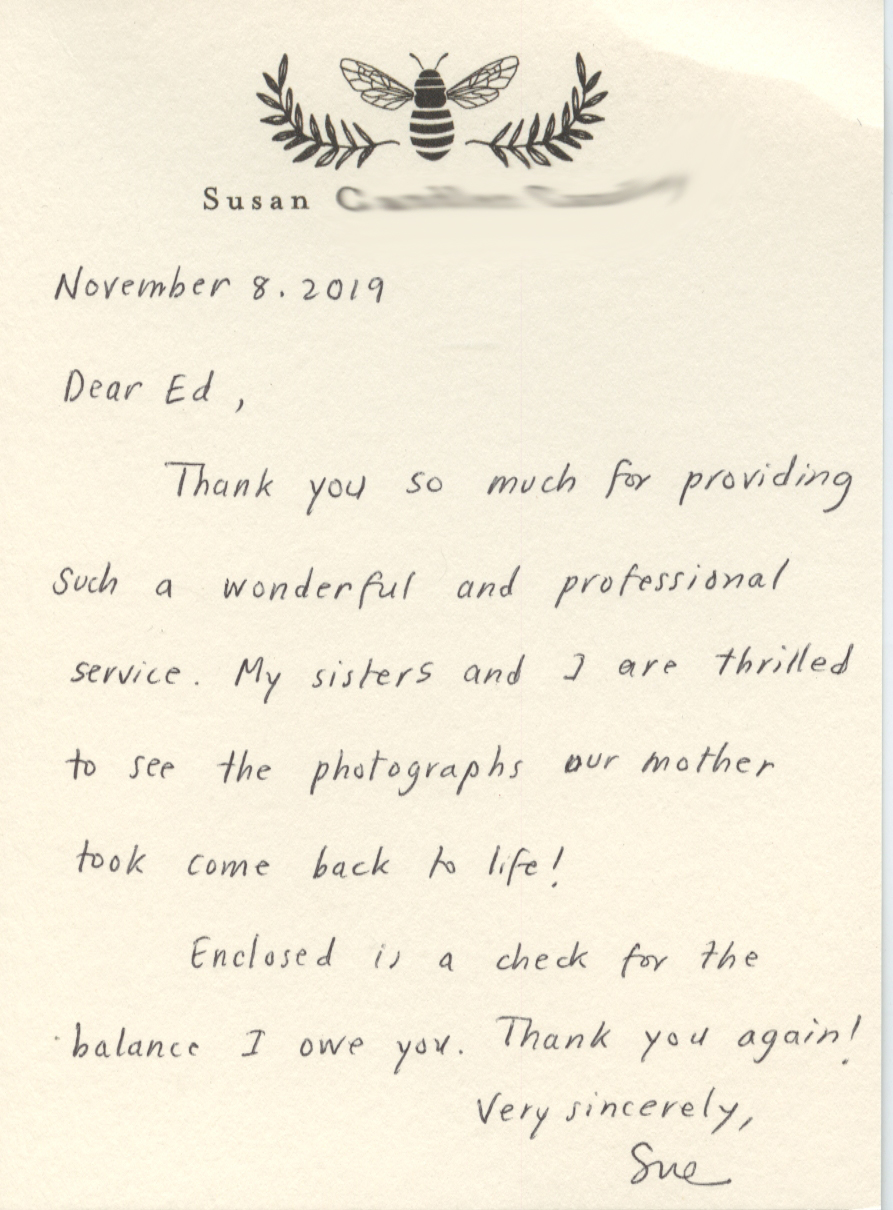 Susan
November 8. 2019
Dear Ed,
Thank you so much for providing
such a wonderful and professional
service. My sisters and I are thrilled
to see the photographs our mother
took come back to life!
Enclosed is a check for the
balance I owe you. Thank you again!
Very sincerely,
Sue